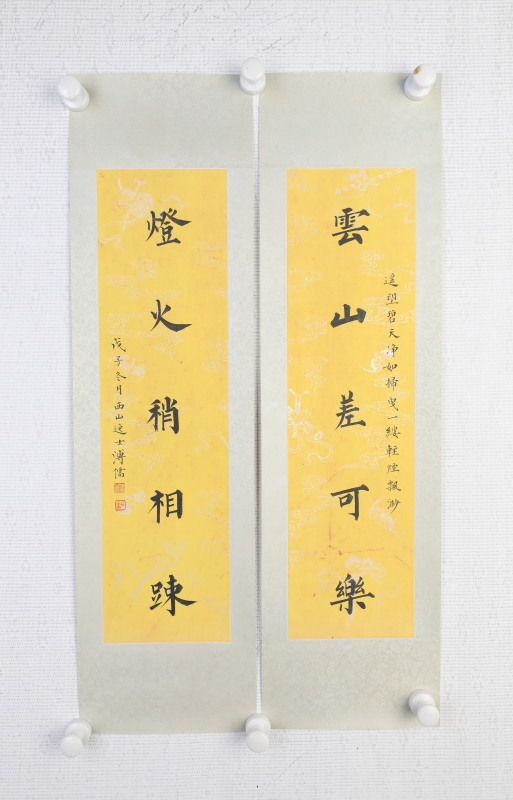 雲山差可樂
遙望碧天淨如掃曳一縷輕煙揻渺
燈火稍相踈
戊子冬月西山逸士溥儒